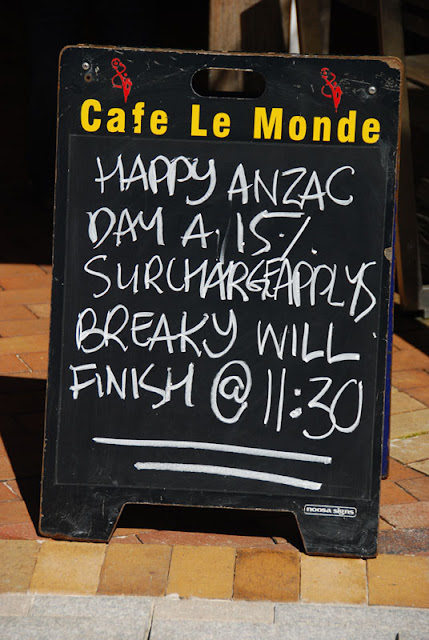 Cafe Le Monde
HAPPY ANZAC
DAY A. 15%.
SURCHARGE APPLYS
BREAKY WILL
FINISH @ 11:30
noosa signs